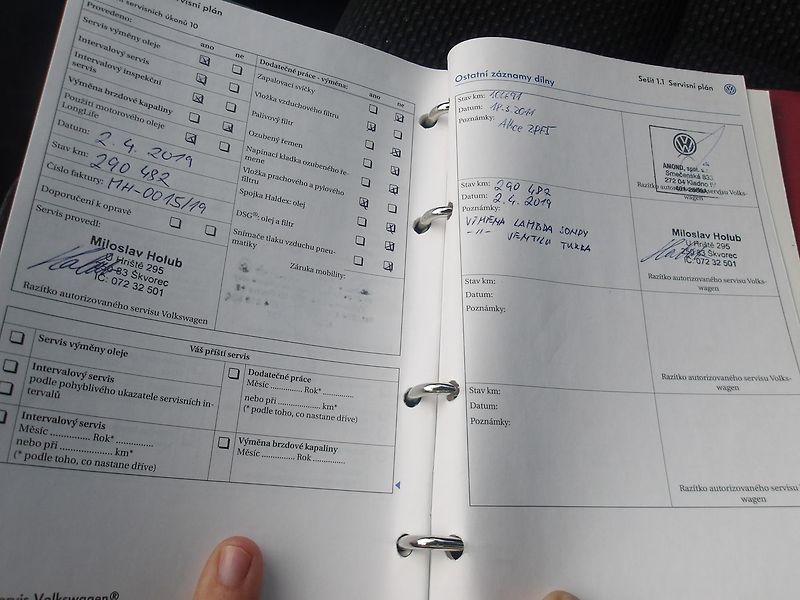 servisní plán
servisních úkonů 10
Provedeno:
ano
ne
Servis výměny oleje
Intervalový servis
Intervalový inspekční
servis
Výměna brzdové kapaliny
Použití motorového oleje
LongLife
Datum: 2. 4. 2019
Stav km: 290 482
Číslo faktury: MH-0015/19
Doporučení k opravě
Servis provedl:
Miloslav Holub
U Hřiště 295
250 83 Škvorec
IČ: 072 32 501
Razítko autorizovaného servisu Volkswagen
Dodatečné práce - výměna:
ano
ne
Zapalovací svíčky
Vložka vzduchového filtru
Palivový filtr
Ozubený řemen
Napínací kladka ozubeného ře-
mene
Vložka prachového a pylového
filtru
Spojka Haldex: olej
DSG®: olej a filtr
Snímače tlaku vzduchu pneu-
matiky
Záruka mobility:
Váš příští servis
Servis výměny oleje
Intervalový servis
podle pohyblivého ukazatele servisních in-
tervalů
Intervalový servis
Měsíc ............... Rok* ...............
nebo při ............... km*
(* podle toho, co nastane dříve)
Dodatečné práce
Měsíc ............... Rok* ...............
nebo při ............... km*
(* podle toho, co nastane dříve)
Výměna brzdové kapaliny
Měsíc ............... Rok ...............
Servis Volkswagen®
Ostatní záznamy dílny
Sešit 1.1 Servisní plán
Stav km:
Datum: 18.3.2011
Poznámky: Akce
AMOND, spol.
Smečenská 833
272 04 Kladno
Razítko autorizovaného servisu Volks-
wagen
Stav km: 290 482
Datum: 2. 4. 2019
Poznámky:
VÝMĚNA LAMBDA SONDY
-11- VENTILU TURBA
Miloslav Holub
U Hřiště 295
250 83 Škvorec
IČ: 072 32 501
Razítko autorizovaného servisu Volks-
wagen
Stav km:
Datum:
Poznámky:
Razítko autorizovaného servisu Volks-
wagen
Stav km:
Datum:
Poznámky:
Razítko autorizovaného servisu Volks-
wagen